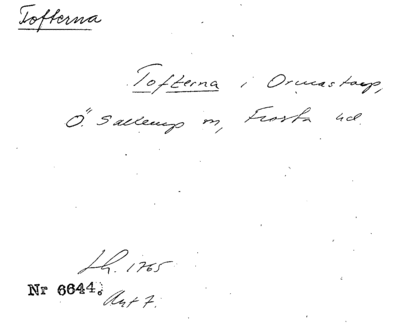 Tofterna
Tofterna i Ormastorp,
Ö. Sallerup sn, Frosta hd.
Lh. 1765
Nr 6644.
Akt 7.